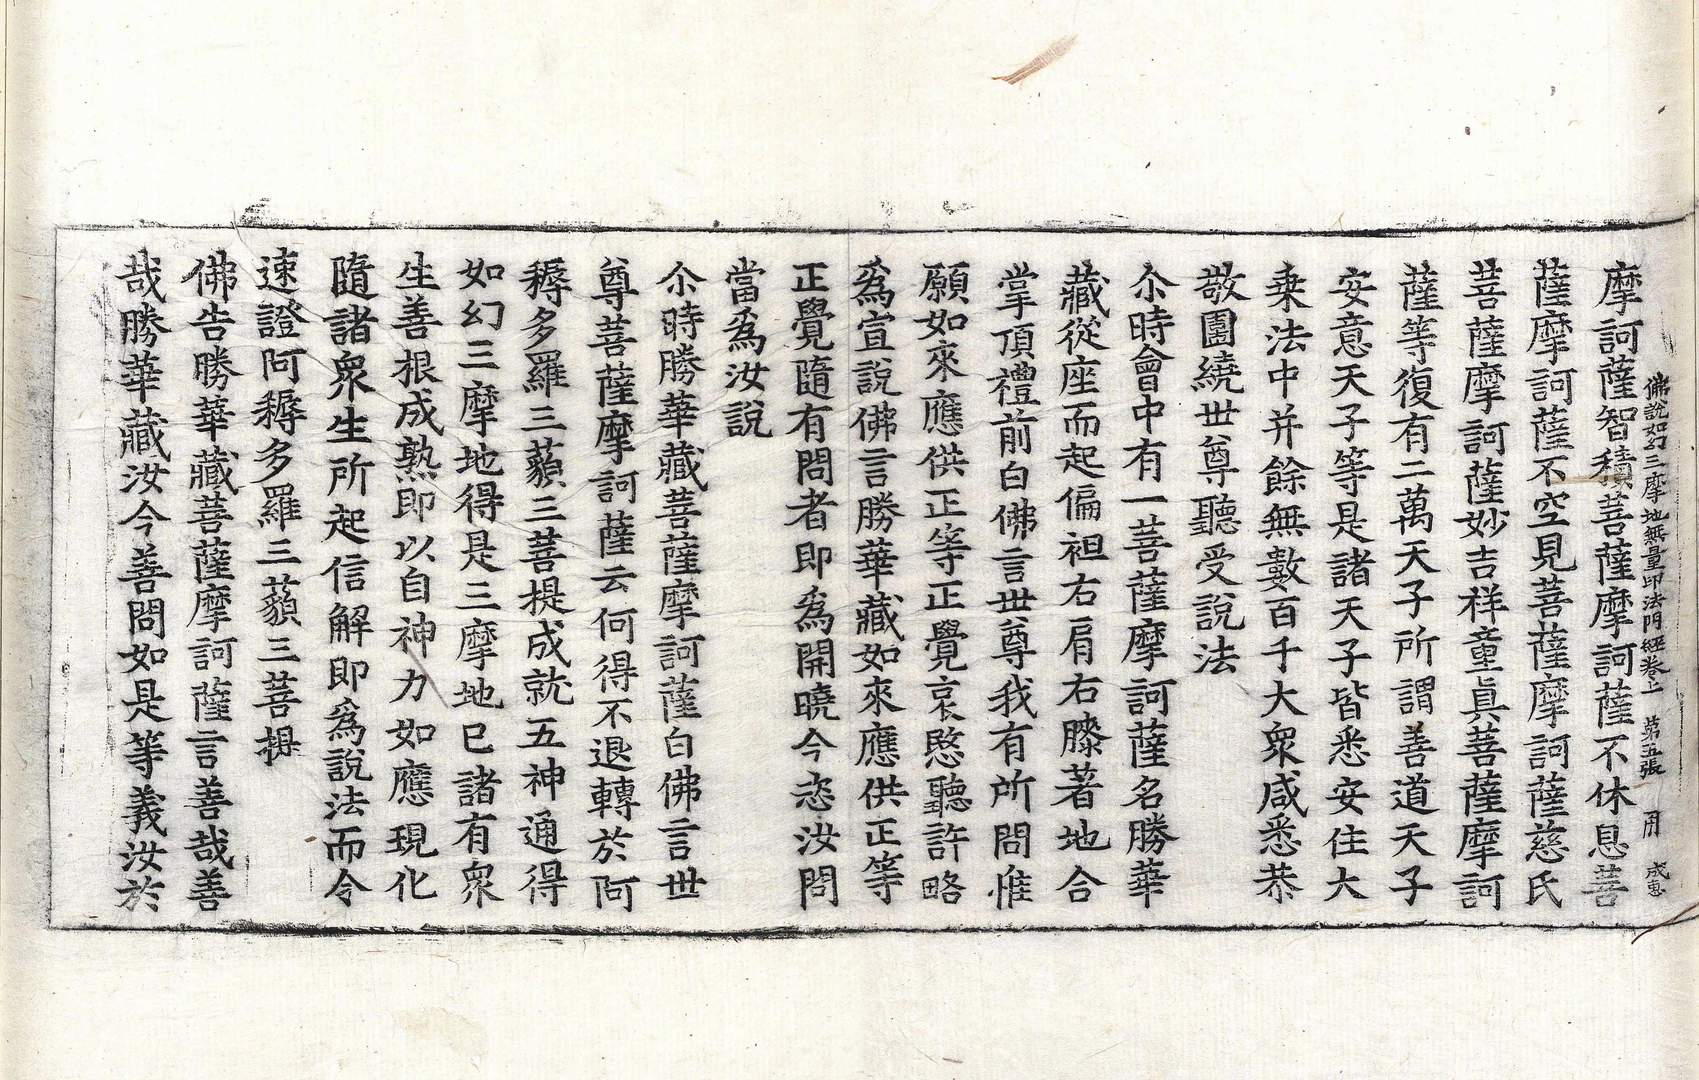 佛說如幻三摩地無量印法門經卷上　第五張　用　成惠
摩訶薩智積菩薩摩訶薩不休息菩
薩摩訶薩不空見菩薩摩訶薩慈氏
菩薩摩訶薩妙吉祥童眞菩薩摩訶
薩等復有二萬天子所謂善道天子
安意天子等是諸天子皆悉安住大
乗法中并餘無數百千大衆咸悉恭
敬圍繞世尊聽受說法
尒時會中有一菩薩摩訶薩名勝華
藏從座而起偏袒右肩右膝著地合
掌頂禮前白佛言世尊我有所問惟
願如來應供正等正覺哀愍聽許略
爲宣說佛言勝華藏如來應供正等
正覺隨有問者即爲開曉今恣汝問
當爲汝說
尒時勝華藏菩薩摩訶薩白佛言世
尊菩薩摩訶薩云何得不退轉於阿
耨多羅三藐三菩提成就五神通得
如幻三摩地得是三摩地已諸有衆
生善根成熟即以自神力如應現化
隨諸衆生所起信解即爲說法而令
速證阿耨多羅三藐三菩提
佛告勝華藏菩薩摩訶薩言善哉善
哉勝華藏汝今善問如是等義汝於